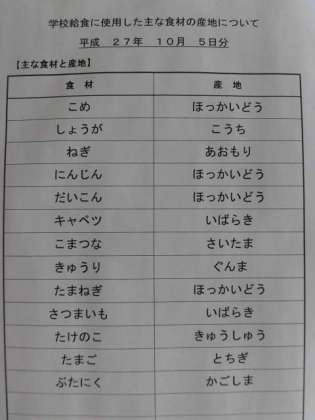 学校給食に使用した主な食材の産地について
平成 27年 10月 5日分
【主な食材と産地】
食材 産地
こめ ほっかいどう
しょうが こうち
ねぎ あおもり
にんじん ほっかいどう
だいこん ほっかいどう
キャベツ いばらき
こまつな さいたま
きゅうり ぐんま
たまねぎ ほっかいどう
さつまいも いばらき
たけのこ きゅうしゅう
たまご とちぎ
ぶたにく かごしま